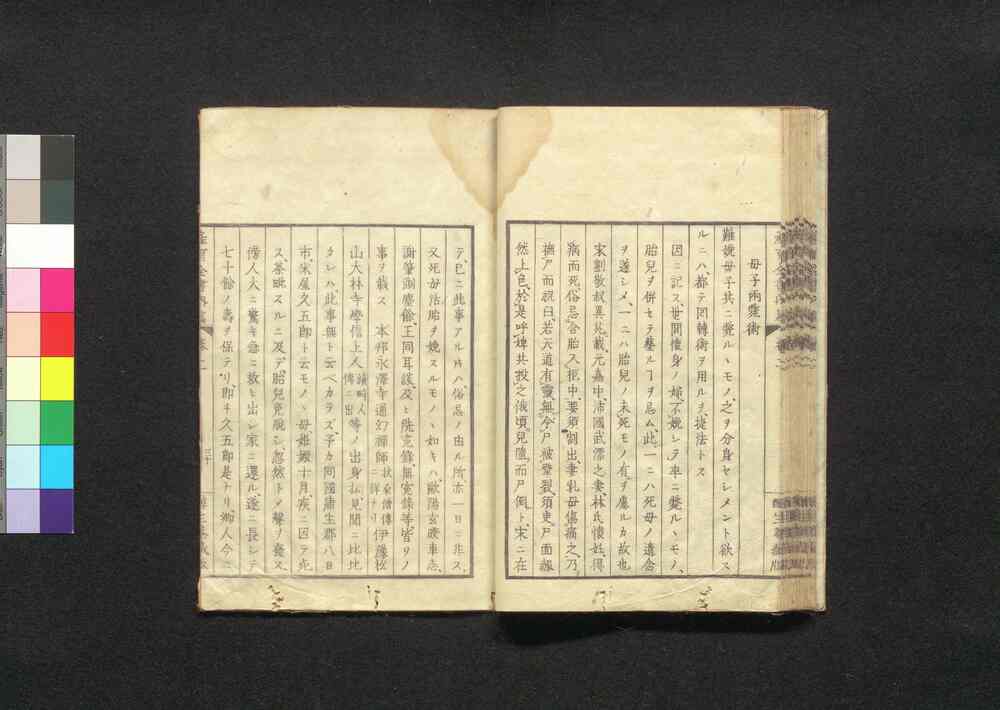 母子兩斃術
難娩母子共ニ斃ルヽモノ之ヲ分身セシメント欲ス
ルニハ都テ回轉術ヲ用ルヲ捷法トス
因ニ記ス世間懷身ノ婦不娩シテ卒ニ斃ルヽモノ
胎兒ヲ併セテ葬ルヿヲ忌ム此一ニハ死母ノ遺念
ヲ遂シメ一ニハ胎兒ノ未死モノ有ヲ慮ルカ故也
宋劉敬叔異苑載元嘉中沛國武漂之妻林氏懷姙得
病而死俗忌含胎入柩中要須割出妻乳母傷痛之乃
撫尸而祝曰若天道有靈無令尸被壅裂須臾尸面赧
然上色於是呼婢共扶之俄頃兒墮而尸倒ト宋ニ在
テ已ニ此事アル片ハ俗忌ノ由ル所亦一日ニ非ス
又死母活胎ヲ娩スルモノヽ如キハ歐陽玄暌車志
謝肇淛塵餘王同耳談及ヒ洗寃錄無寃錄等皆ソノ
事ヲ載ス 本邦永澤寺通幻禪師扶桑僧傳ニ詳ナリ伊豫松
山大林寺學信上人續畸人傳ニ出等ノ出身仏見聞ニ比比
タレハ此事無ト云ヘカラス予カ同國蒲生郡八日
市米屋久五郎ト云モノヽ母姙娠十月疾ニ因テ死
ス荼毗スルニ及テ胎兒免脫シ忽然トノ聲ヲ發ス
傍人大ニ驚キ急ニ救ヒ出シ家ニ還ル遂ニ長シテ
七十餘ノ壽ヲ保テリ即チ久五郎是ナリ鄕人今ニ